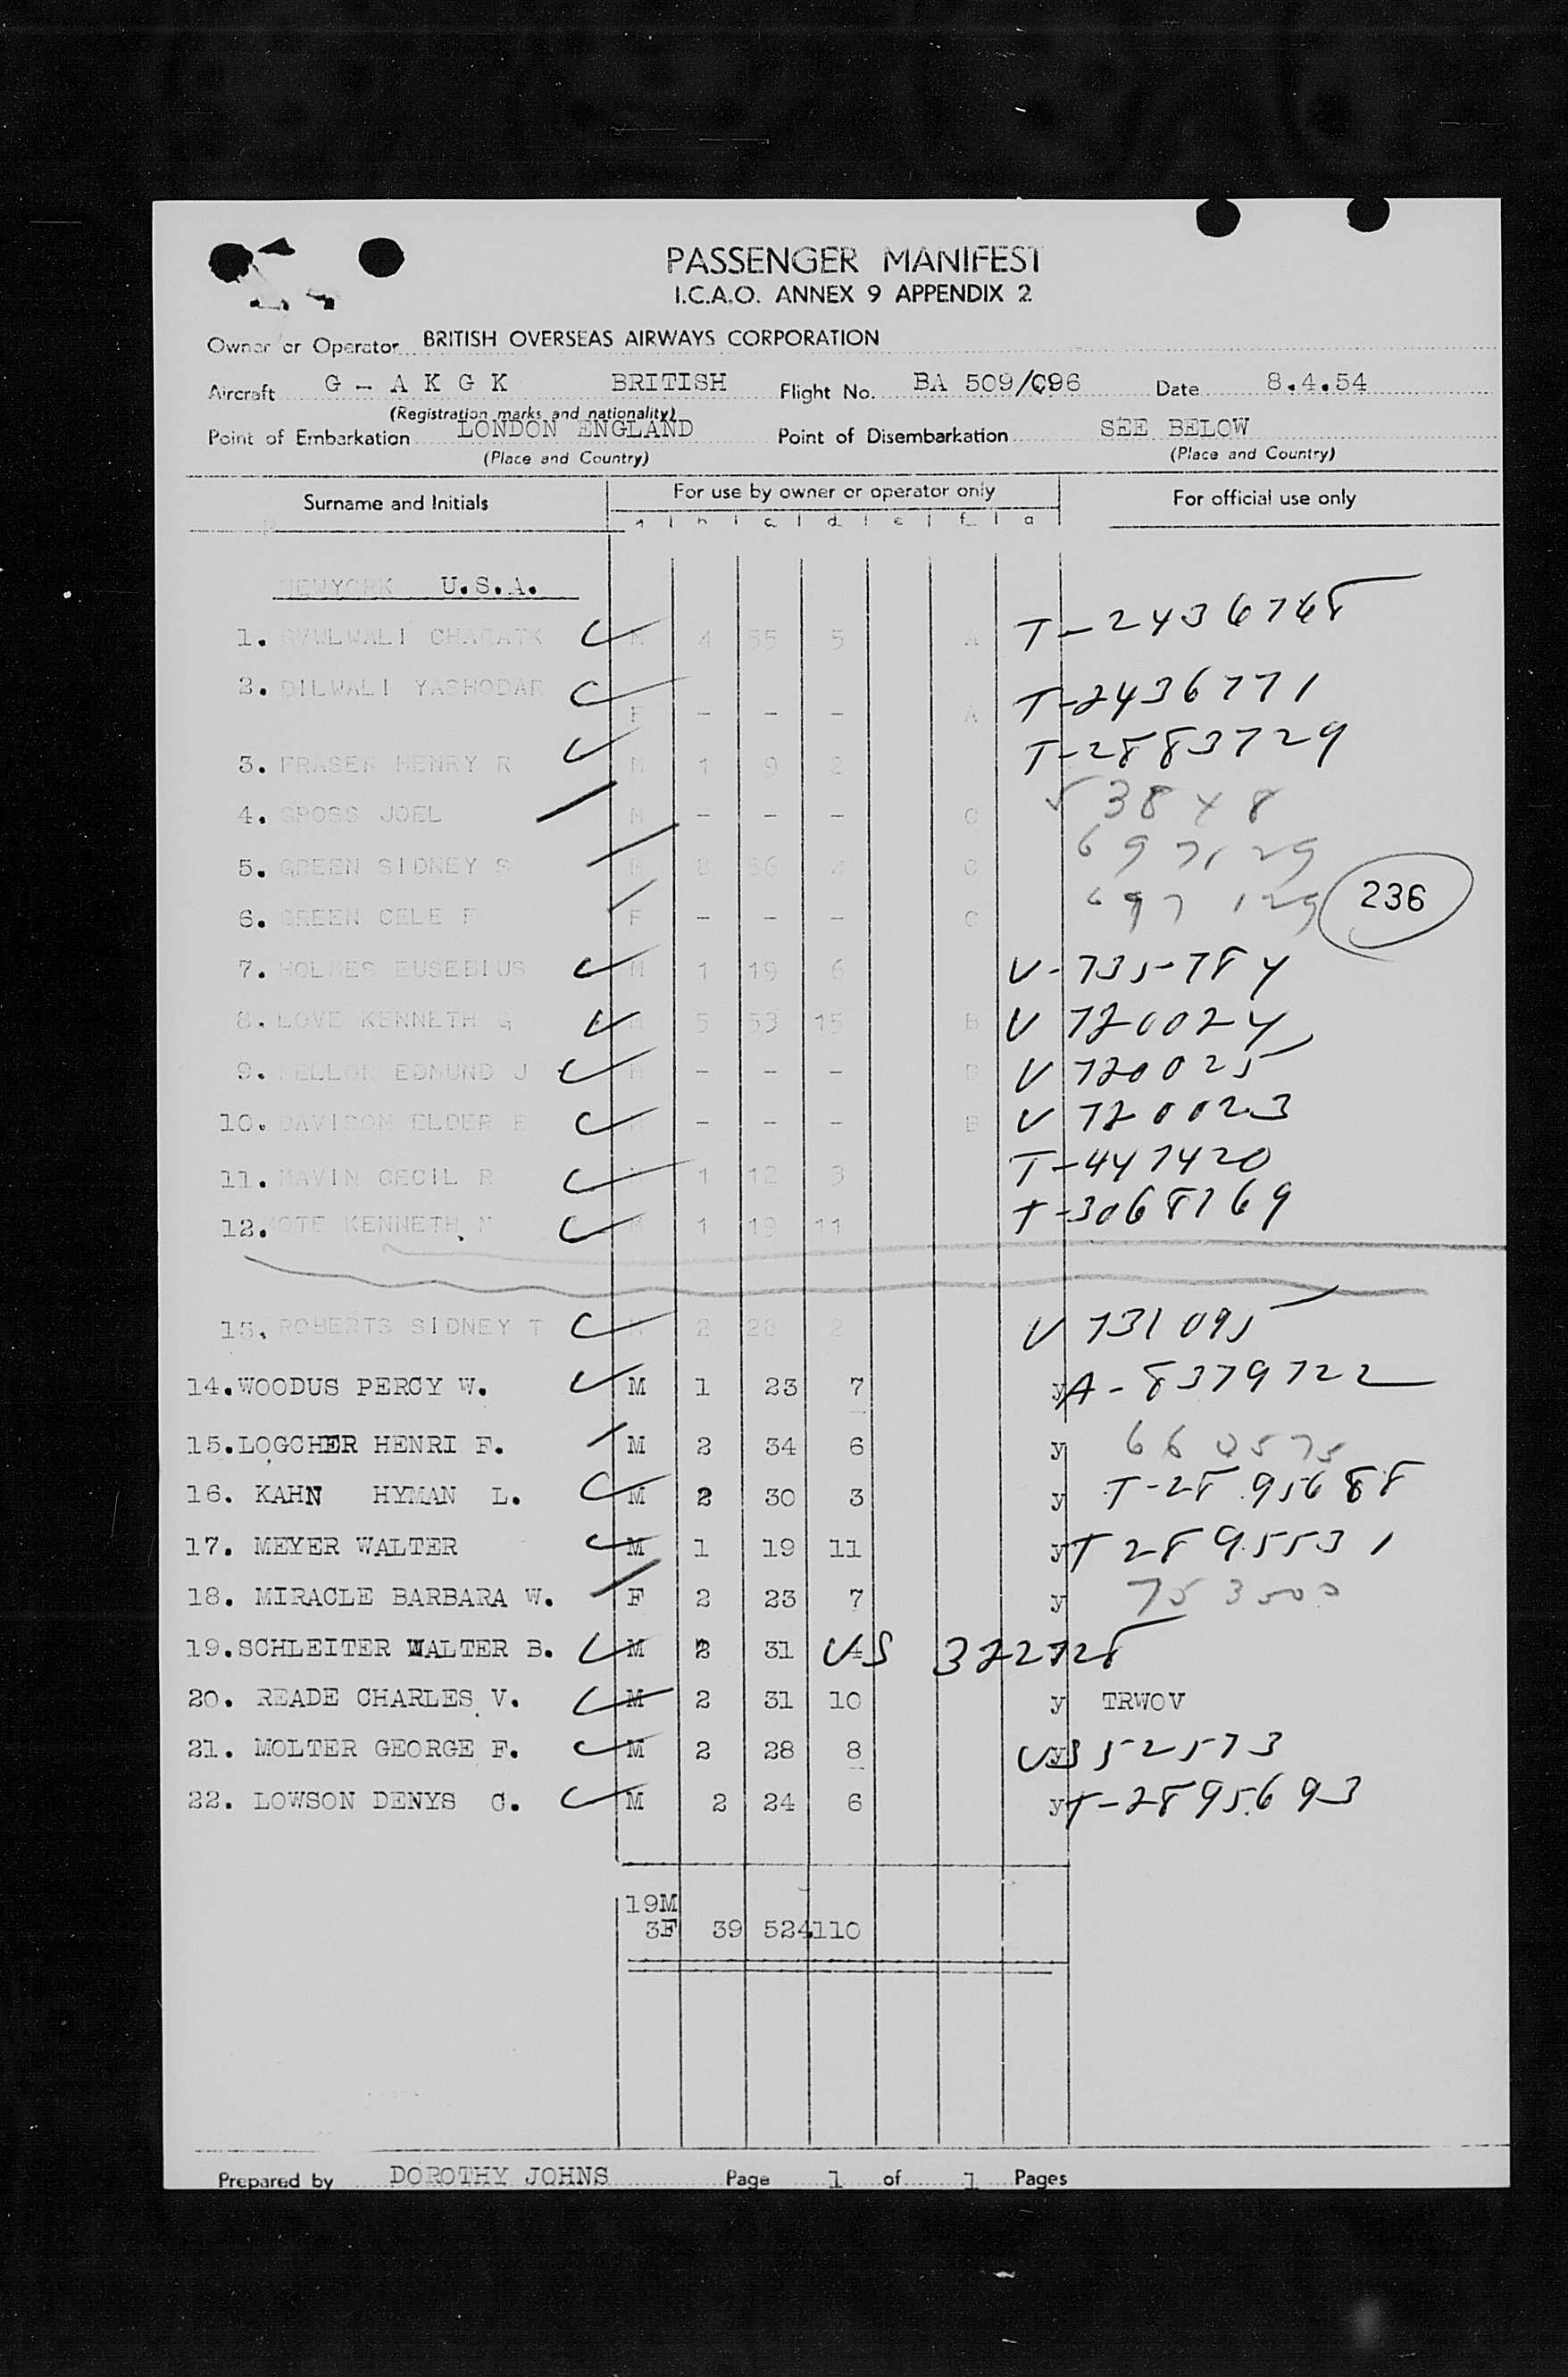 PASSENGER MANIFEST
I.C.A.O. ANNEX 9 APPENDIX 2
Owner or Operator BRITISH OVERSEAS AIRWAYS CORPORATION
Aircraft G - A K G K BRITISH Flight No. BA 509/096 Date 8.4.54
(Registration marks and nationality)
Point of Embarkation LONDON ENGLAND Point of Disembarkation SEE BELOW
(Place and Country) (Place and Country)
Surname and Initials For use by owner or operator only For official use only
c d e f
NEWYORK U.S.A.
1. M 4 55 5 A T-2436768
2. DILWALI YASHODAR F - - - A T-2436771
3. FRASER HENRY R M 1 9 2 T-2883729
4. GROSS JOEL M - - - C 53848
5. GREEN SIDNEY S M 8 56 4 C 697129
6. GREEN CELE F F - - - C 697129
236
7. HOLMES EUSEBIUS M 1 19 6 V-735784
8. LOVE KENNETH G M 5 53 15 B V 720024
9. MELLOR EDMUND J M - - - B V 720025
10. DAVISON ELDER E M - - - B V 720023
11. MAVIN CECIL R 1 12 3 T-447420
12. MOTE KENNETH M M 1 19 11 T-3068769
13. ROBERTS SIDNEY T M 2 28 2 V 731095
14. WOODUS PERCY W. M 1 23 7 y A-8379722
15. LOGCHER HENRI F. M 2 34 6 y 660575
16. KAHN HYMAN L. M 2 30 3 y T-2895688
17. MEYER WALTER M 1 19 11 y T 2895531
18. MIRACLE BARBARA W. F 2 23 7 y 753500
19. SCHLEITER WALTER B. M 2 31 4 US 322728
20. READE CHARLES V. M 2 31 10 y TRWOV
21. MOLTER GEORGE F. M 2 28 8 y V352573
22. LOWSON DENYS C. M 2 24 6 y T-2895693
19M
3F 39 524 110
Prepared by DOROTHY JOHNS Page 1 of 1 Pages